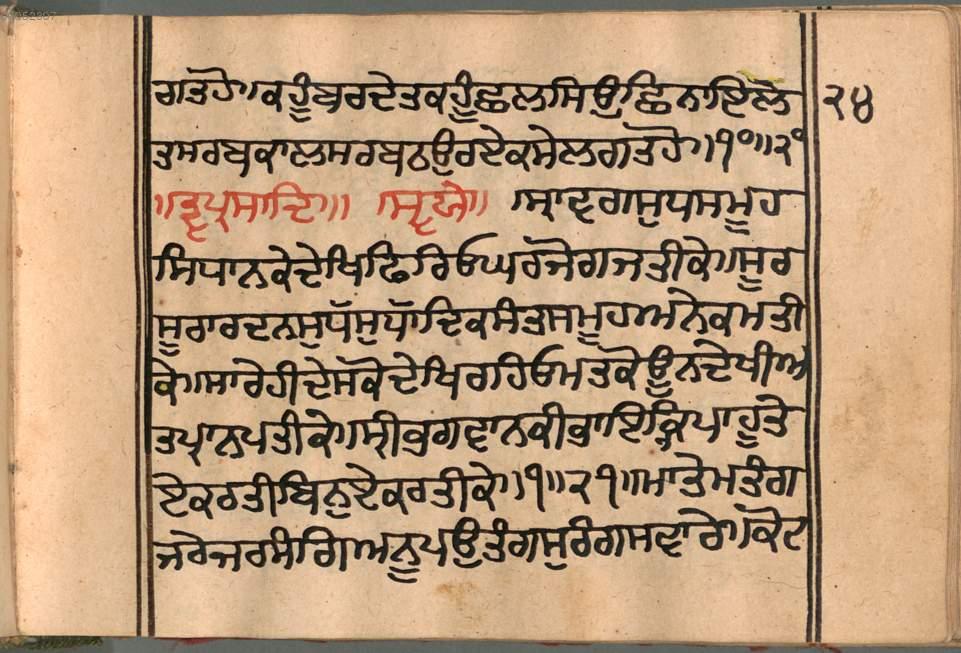 ਗਤਹੋ॥ਕਹੂੰਬਰਦੇਤਕਹੂੰਛਲਸਿਉਛਿਨਾਇਲੋ ੨੪
ਤਸਰਬਕਾਲਸਰਬਠਉਰਏਕਸੇਲਗਤਹੋ॥੧੦॥੨੦
॥ਤ੍ਵਪ੍ਰਸਾਦਿ॥ ਸ੍ਵਯੇ॥ ਸ੍ਰਾਵਗਸੁਧਸਮੂਹ
ਸਿਧਾਨਕੇਦੇਖਿਫਿਰਿਓਘਰਜੋਗਜਤੀਕੇ॥ਸੂਰ
ਸੂਰਾਰਦਨਸੁਧੱਸੁਧਾਦਿਕਸੰਤਸਮੂਹਅਨੇਕਮਤੀ
ਕੇ॥ਸਾਰੇਹੀਦੇਸਕੋਦੇਖਿਰਹਿਓਮਤਕੋਊਨਦੇਖੀਅ
ਤਪ੍ਰਾਨਪਤੀਕੇ॥ਸ੍ਰੀਭਗਵਾਨਕੀਭਾਇਕ੍ਰਿਪਾਹੂਤੇ
ਏਕਰਤੀਬਿਨੁਏਕਰਤੀਕੇ॥੧॥੨੧॥ਮਾਤੇਮਤੰਗ
ਜਰੇਜਰਸੰਗਿਅਨੂਪਉਤੰਗਸੁਰੰਗਸਵਾਰੇ॥ਕੋਟ